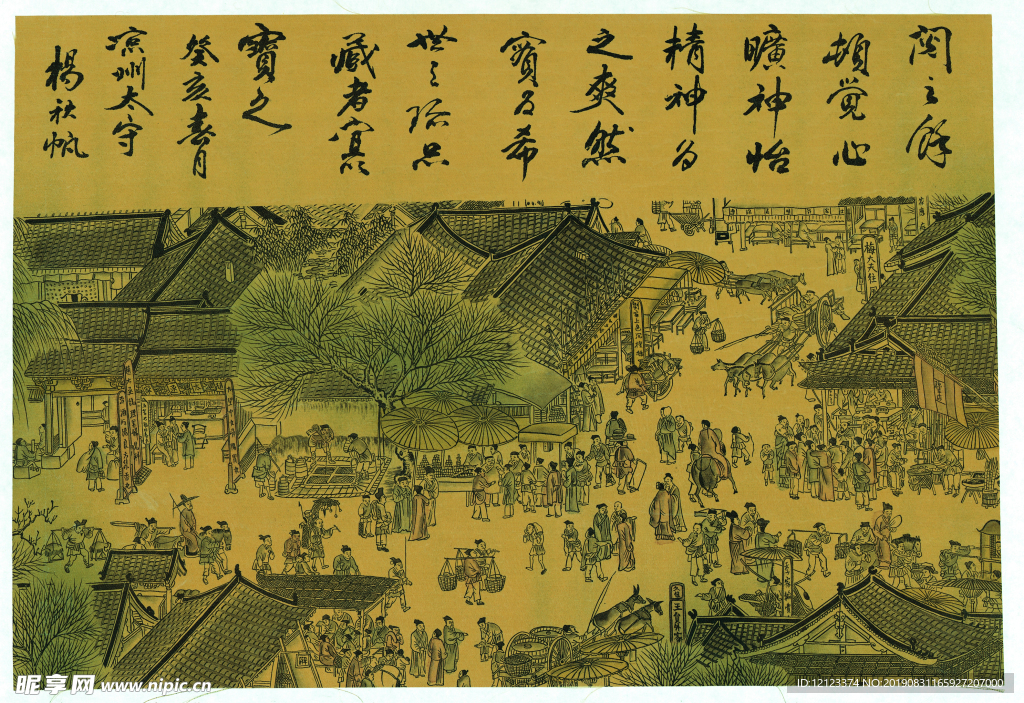 閱之餘
頓覺心
曠神怡
精神為
之爽然
實為希
世之珍品
藏者宜
寶之
癸亥春月
涼州太守
楊秋帆
昵享网 www.nipic.cn
ID:12123374 NO:20190831165927207000